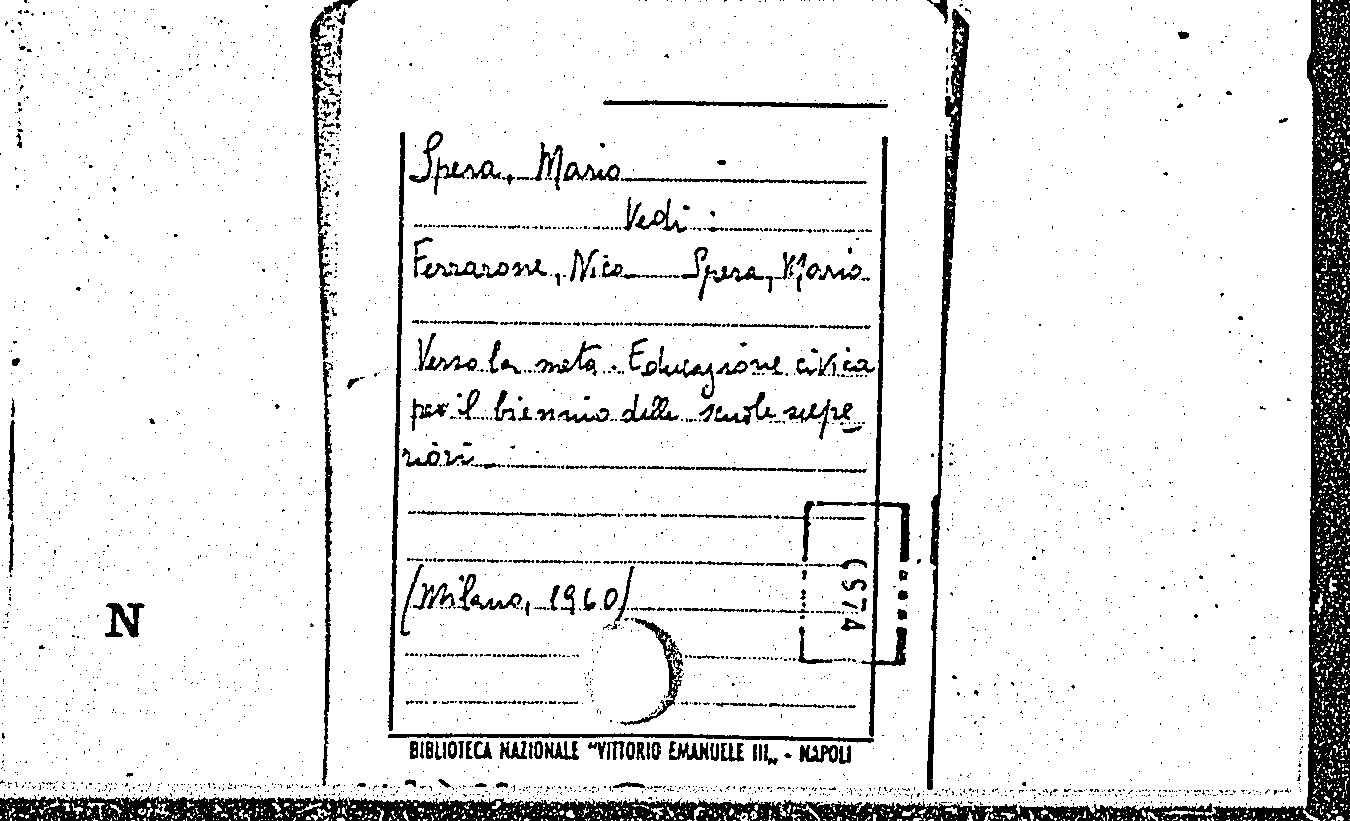 Spera, Mario
Vedi :
Ferrarone, Nico Spera, Mario
Verso la meta. Educazione civica
per il biennio delle scuole supe
riori.
(Milano, 1960)
N
BIBLIOTECA NAZIONALE "VITTORIO EMANUELE III„ - NAPOLI